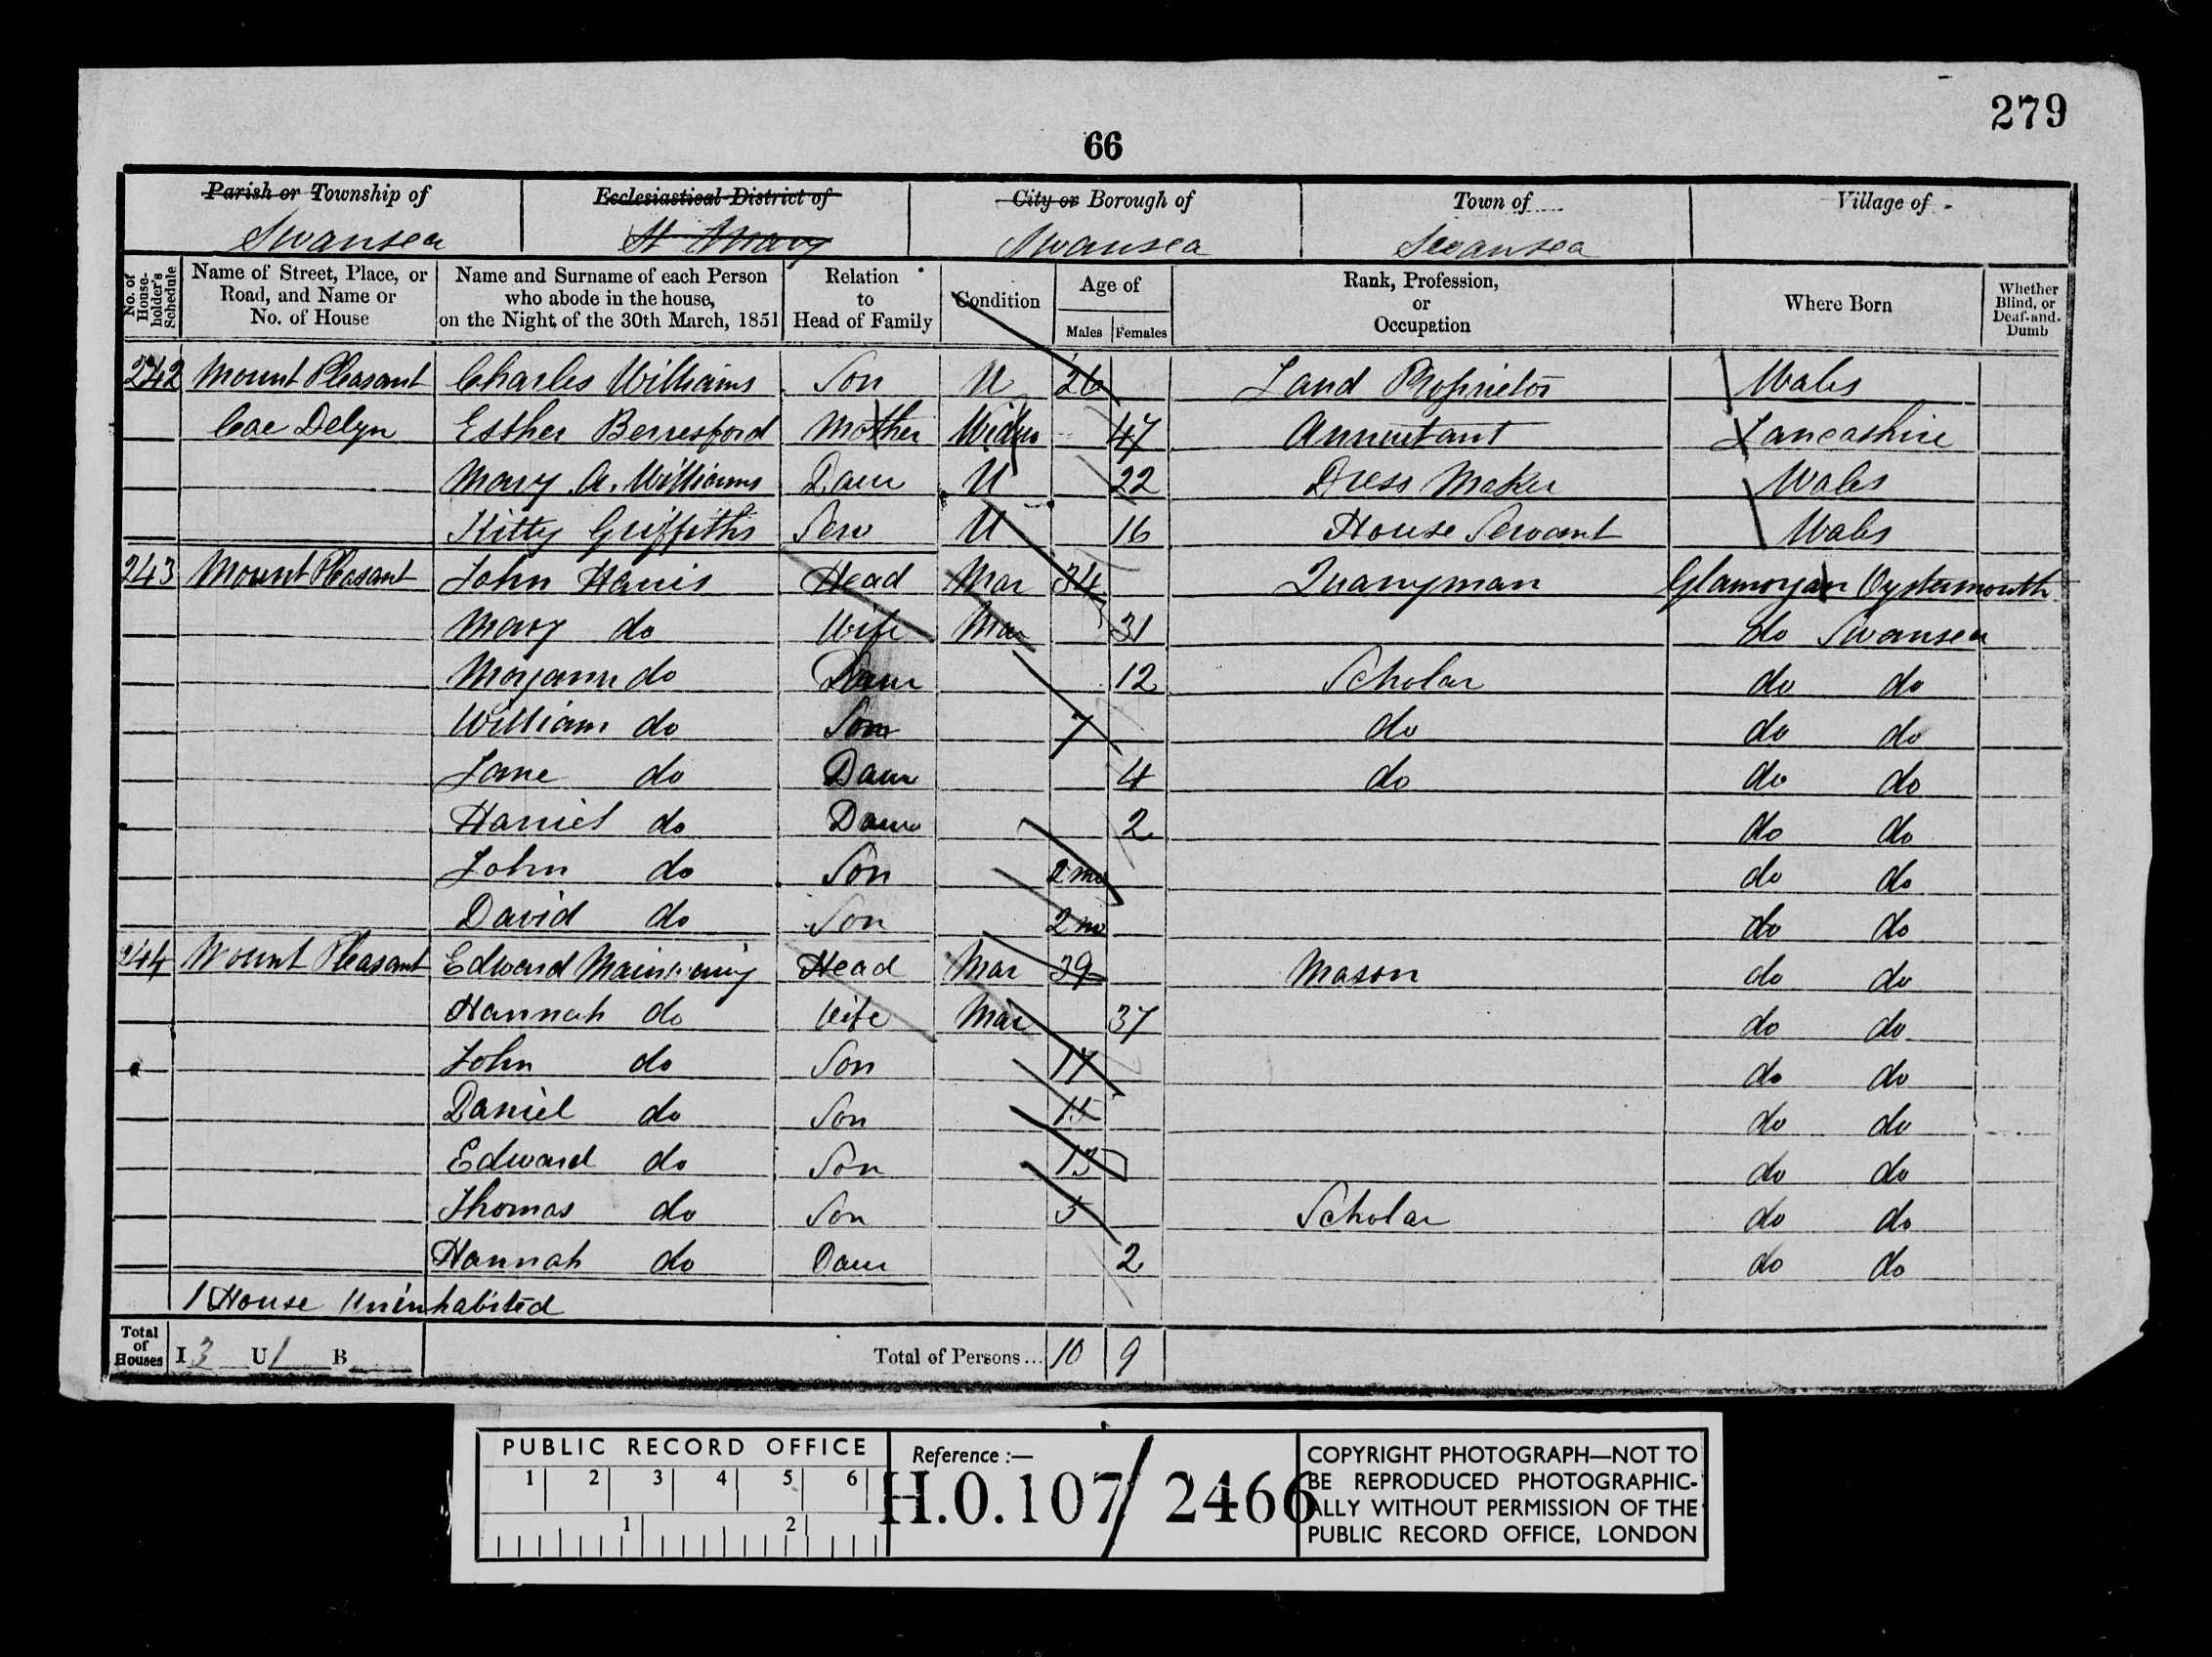 279
66
Parish or Township of Ecclesiastical District of City or Borough of Town of Village of
Swansea St Mary Swansea Swansea
No. of House-holder's Schedule Name of Street, Place, or Road, and Name or No. of House Name and Surname of each Person who abode in the house, on the Night of the 30th March, 1851 Relation to Head of Family Condition Age of Males Females Rank, Profession, or Occupation Where Born Whether Blind, or Deaf-and-Dumb
242 Mount Pleasant Charles Williams Son U 26 Land Proprietor Wales
Cae Delyn Esther Berresford Mother Widow 47 Annuitant Lancashire
Mary A. Williams Daur U 22 Dress Maker Wales
Kitty Griffiths Serv U 16 House Servant Wales
243 Mount Pleasant John Harris Head Mar 34 Quarryman Glamorgan Oystermouth
Mary do Wife Mar 31 do Swansea
Maryann do Daur 12 Scholar do do
William do Son 7 do do do
Jane do Daur 4 do do do
Harriet do Daur 2 do do
John do Son 2 mo do do
David do Son 2 mo do do
244 Mount Pleasant Edward Head Mar 39 Mason do do
Hannah do Wife Mar 37 do do
John do Son 17 do do
Daniel do Son 15 do do
Edward do Son 13 do do
Thomas do Son 5 Scholar do do
Hannah do Daur 2 do do
1 House Uninhabited
Total of Houses I 3 U 1 B Total of Persons... 10 9
PUBLIC RECORD OFFICE
1 2 3 4 5 6
1 2
Reference :—
H.O. 107/2466
COPYRIGHT PHOTOGRAPH—NOT TO
BE REPRODUCED PHOTOGRAPHIC-
ALLY WITHOUT PERMISSION OF THE
PUBLIC RECORD OFFICE, LONDON